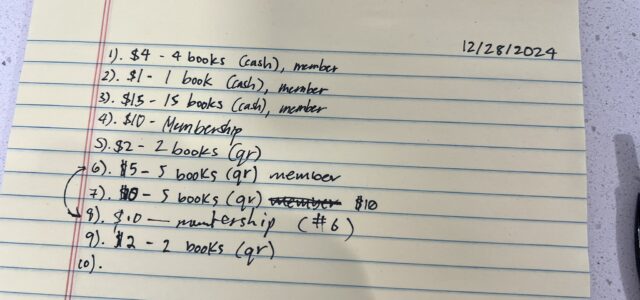 12/28/2024
1). $4 - 4 books (cash), member
2). $1 - 1 book (cash), member
3). $15 - 15 books (cash), member
4). $10 - Membership
5). $2 - 2 books (qr)
6). $5 - 5 books (qr) member
7). - 5 books (qr) member $10
8). $10 — membership (#6)
9). $2 - 2 books (qr)
10).